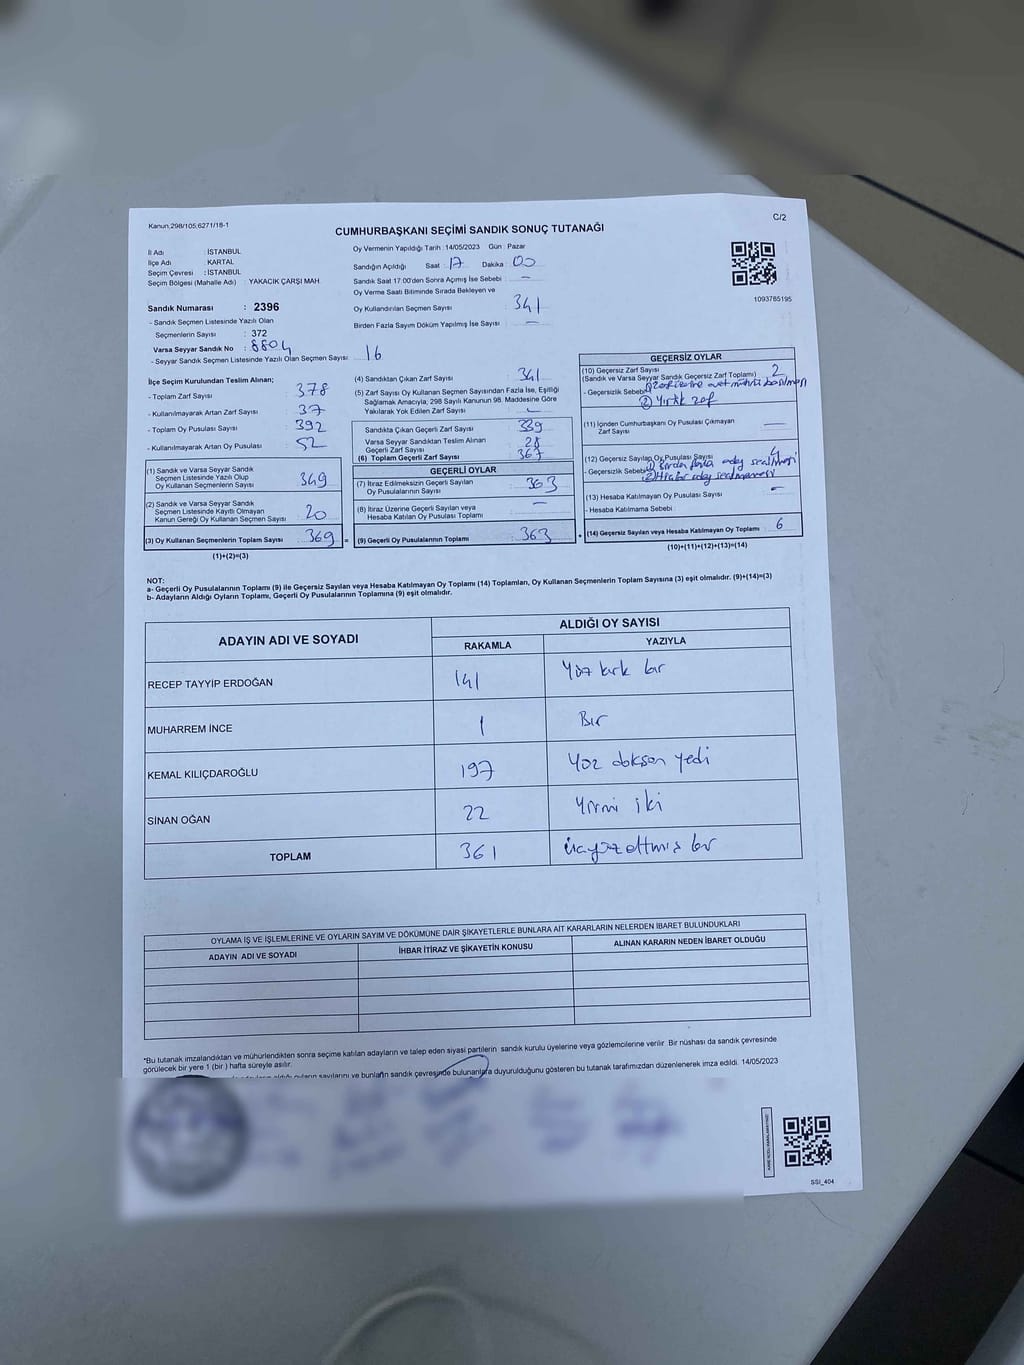 Kanun:298/105;6271/18-1
CUMHURBAŞKANI SEÇİMİ SANDIK SONUÇ TUTANAĞI
C/2
İl Adı : İSTANBUL
İlçe Adı : KARTAL
Seçim Çevresi : İSTANBUL
Seçim Bölgesi (Mahalle Adı) : YAKACIK ÇARŞI MAH
Oy Vermenin Yapıldığı Tarih :14/05/2023 Gün : Pazar
Sandığın Açıldığı Saat : 17 Dakika : 00
Sandık Saat 17:00'den Sonra Açımış İse Sebebi : —
Oy Verme Saati Bitiminde Sırada Bekleyen ve
Oy Kullandırılan Seçmen Sayısı : 341
Birden Fazla Sayım Döküm Yapılmış İse Sayısı : —
1093785195
Sandık Numarası : 2396
- Sandık Seçmen Listesinde Yazılı Olan
Seçmenlerin Sayısı : 372
Varsa Seyyar Sandık No : 8804
- Seyyar Sandık Seçmen Listesinde Yazılı Olan Seçmen Sayısı: 16
İlçe Seçim Kurulundan Teslim Alınan;
- Toplam Zarf Sayısı : 378
- Kullanılmayarak Artan Zarf Sayısı : 37
- Toplam Oy Pusulası Sayısı : 392
- Kullanılmayarak Artan Oy Pusulası : 52
(1) Sandık ve Varsa Seyyar Sandık
Seçmen Listesinde Yazılı Olup
Oy Kullanan Seçmenlerin Sayısı : 349
(2) Sandık ve Varsa Seyyar Sandık
Seçmen Listesinde Kayıtlı Olmayan
Kanun Gereği Oy Kullanan Seçmen Sayısı : 20
(3) Oy Kullanan Seçmenlerin Toplam Sayısı : 369 =
(1)+(2)=(3)
(4) Sandıktan Çıkan Zarf Sayısı : 341
(5) Zarf Sayısı Oy Kullanan Seçmen Sayısından Fazla İse, Eşitliği
Sağlamak Amacıyla, 298 Sayılı Kanunun 98. Maddesine Göre
Yakılarak Yok Edilen Zarf Sayısı : —
Sandıkta Çıkan Geçerli Zarf Sayısı : 339
Varsa Seyyar Sandıktan Teslim Alınan
Geçerli Zarf Sayısı : 28
(6) Toplam Geçerli Zarf Sayısı : 367
GEÇERLİ OYLAR
(7) İtiraz Edilmeksizin Geçerli Sayılan
Oy Pusulalarının Sayısı : 363
(8) İtiraz Üzerine Geçerli Sayılan veya
Hesaba Katılan Oy Pusulası Toplamı : —
(9) Geçerli Oy Pusulalarının Toplamı : 363 +
GEÇERSİZ OYLAR
(10) Geçersiz Zarf Sayısı : 2
(Sandık ve Varsa Seyyar Sandık Geçersiz Zarf Toplamı)
- Geçersizlik Sebebi : ① Zarf üzerine evet mührü basılması
② Yırtık zarf
(11) İçinden Cumhurbaşkanı Oy Pusulası Çıkmayan
Zarf Sayısı : —
(12) Geçersiz Sayılan Oy Pusulası Sayısı : 4
- Geçersizlik Sebebi : ① Birden fazla aday seçilmesi
② Hiçbir aday seçilmemesi
(13) Hesaba Katılmayan Oy Pusulası Sayısı : —
- Hesaba Katılmama Sebebi :
(14) Geçersiz Sayılan veya Hesaba Katılmayan Oy Toplamı : 6
(10)+(11)+(12)+(13)=(14)
NOT:
a- Geçerli Oy Pusulalarının Toplamı (9) ile Geçersiz Sayılan veya Hesaba Katılmayan Oy Toplamı (14) Toplamları, Oy Kullanan Seçmenlerin Toplam Sayısına (3) eşit olmalıdır. (9)+(14)=(3)
b- Adayların Aldığı Oyların Toplamı, Geçerli Oy Pusulalarının Toplamına (9) eşit olmalıdır.
ADAYIN ADI VE SOYADI
ALDIĞI OY SAYISI
RAKAMLA YAZIYLA
RECEP TAYYİP ERDOĞAN 141 Yüz kırk bir
MUHARREM İNCE 1 Bir
KEMAL KILIÇDAROĞLU 197 Yüz doksan yedi
SİNAN OĞAN 22 Yirmi iki
TOPLAM 361 üçyüz altmış bir
OYLAMA İŞ VE İŞLEMLERİNE VE OYLARIN SAYIM VE DÖKÜMÜNE DAİR ŞİKAYETLERLE BUNLARA AİT KARARLARIN NELERDEN İBARET BULUNDUKLARI
ADAYIN ADI VE SOYADI İHBAR İTİRAZ VE ŞİKAYETİN KONUSU ALINAN KARARIN NEDEN İBARET OLDUĞU
*Bu tutanak imzalandıktan ve mühürlendikten sonra seçime katılan adayların ve talep eden siyasi partilerin sandık kurulu üyelerine veya gözlemcilerine verilir. Bir nüshası da sandık çevresinde
görülecek bir yere 1 (bir) hafta süreyle asılır.
aldığı oyların sayılarını ve bunların sandık çevresinde bulunanlara duyurulduğunu gösteren bu tutanak tarafımızdan düzenlenerek imza edildi. 14/05/2023
SSI_404